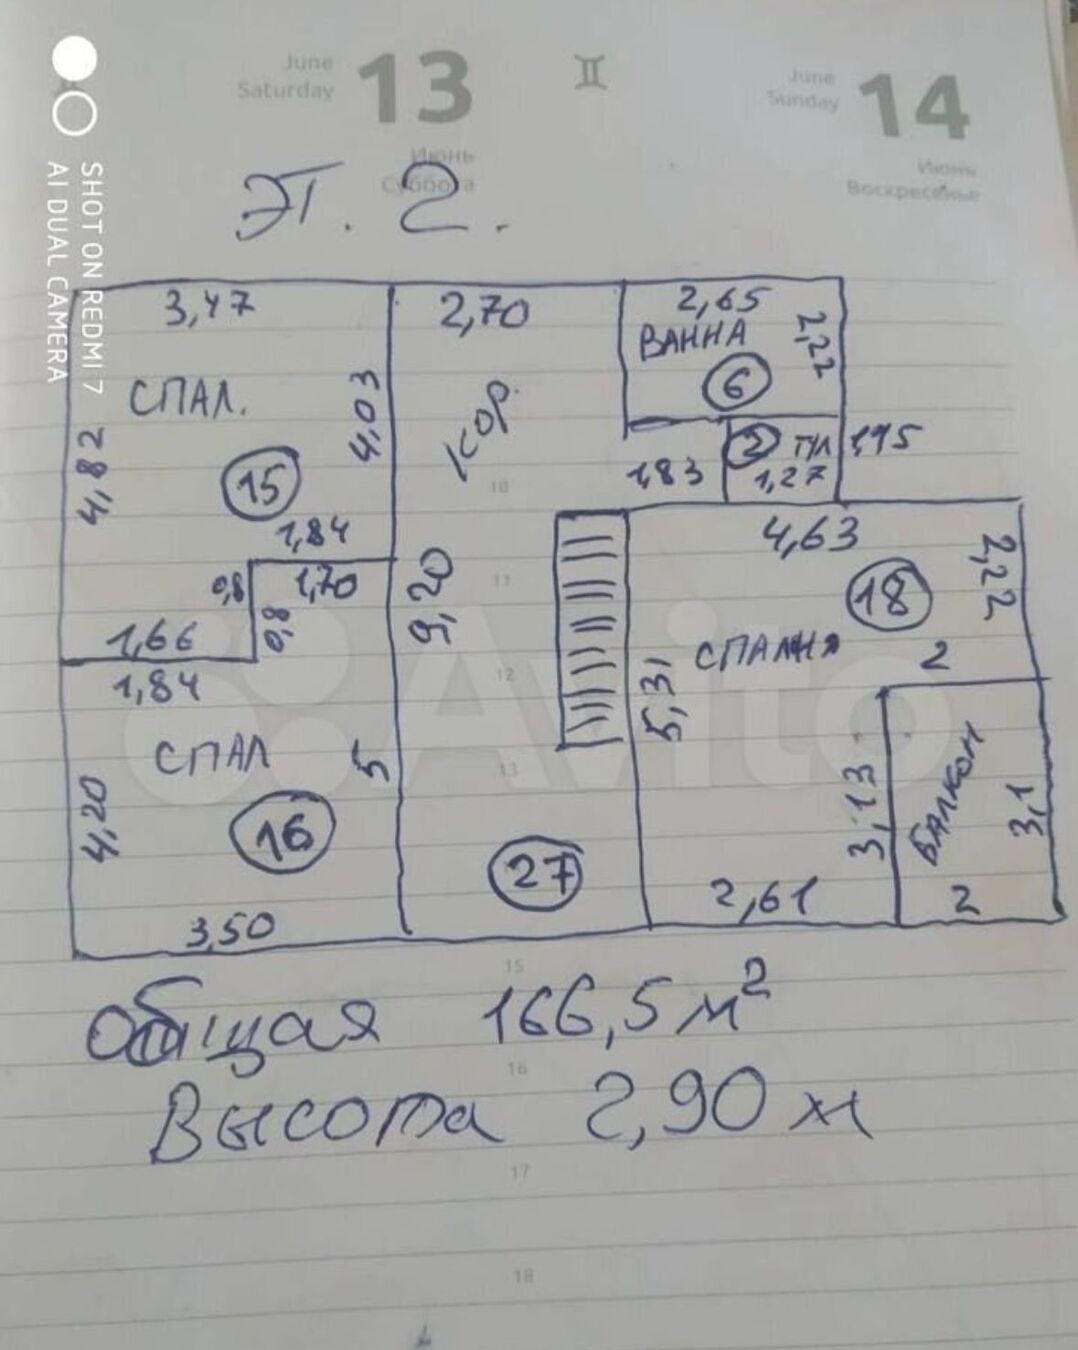 SHOT ON REDMI 7
AI DUAL CAMERA
June
Saturday
13
Июнь
Суббота
June
Sunday
14
Июнь
Воскресенье
ЭТ. 2.
3,47
2,70
2,65
ВАННА
2,22
6
СПАЛ.
4,03
4,82
15
кор.
2
т/л
1,15
1,83
1,27
10
1,84
4,63
2,22
0,8
1,70
0,8
11
9,20
18
1,66
СПАЛНЯ
2
12
1,84
5,31
СПАЛ
5
13
4,20
16
3,13
БАЛКОН
3,1
27
2,61
2
3,50
Avito
15
общая 166,5 м²
16
Высота 2,90 м
17
18